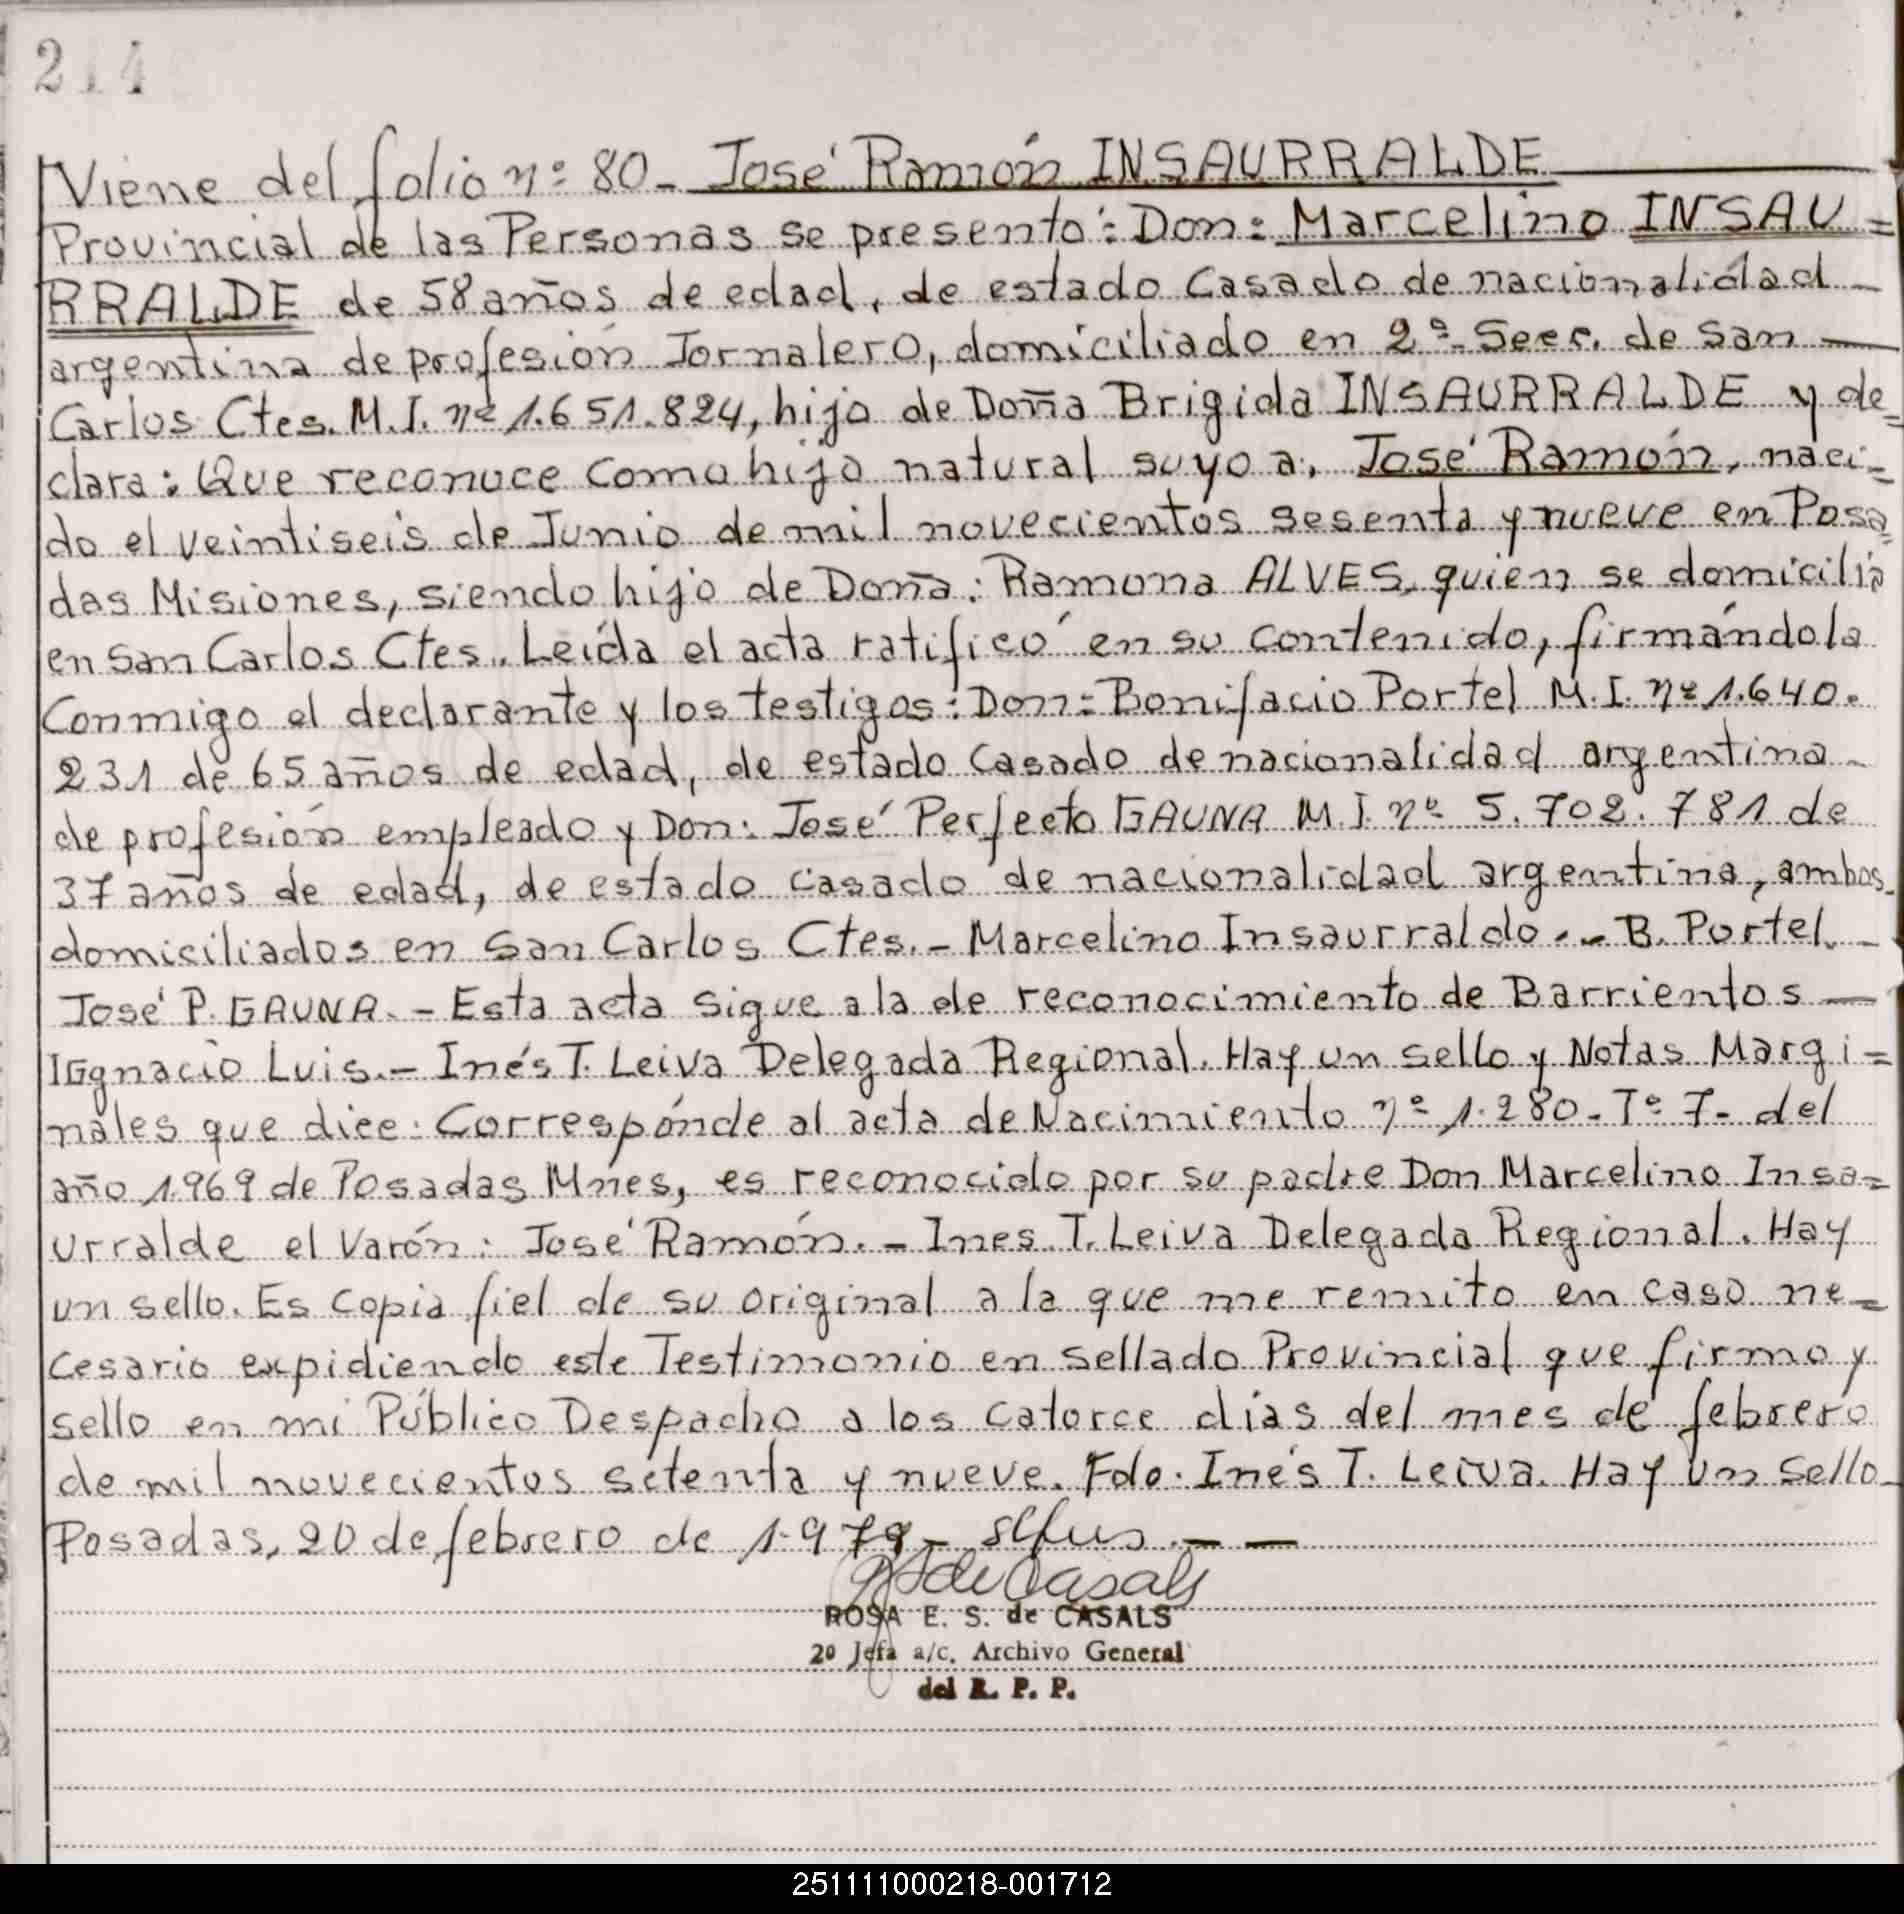 214
Viene del folio nº 80- José Ramón INSAURRALDE
Provincial de las Personas se presentó: Don: Marcelino INSAU=
RRALDE de 58 años de edad, de estado Casado de nacionalidad -
argentina de profesión Jornalero, domiciliado en 2ª Secc. de San —
Carlos Ctes. M.I. nº 1.651.824, hijo de Doña Brigida INSAURRALDE y de=
clara: Que reconoce como hijo natural suyo a: José Ramón, naci=
do el veintiseis de Junio de mil novecientos sesenta y nueve en Posa=
das Misiones, siendo hijo de Doña: Ramona ALVES, quien se domicilia
en San Carlos Ctes.. Leída el acta ratificó en su contenido, firmándola
Conmigo el declarante y los testigos: Don: Bonifacio Portel M.I. nº 1.640.
231 de 65 años de edad, de estado Casado de nacionalidad argentina -
de profesión empleado y Don: José Perfecto GAUNA M.I. nº 5.702.781 de
37 años de edad, de estado casado de nacionalidad argentina, ambos-
domiciliados en San Carlos Ctes.- Marcelino Insaurraldo.- B. Portel. -
José P. GAUNA.- Esta acta sigue a la de reconocimiento de Barrientos —
IGgnacio Luis.- Inés T. Leiva Delegada Regional. Hay un sello y Notas Margi=
nales que dice: Correspónde al acta de Nacimiento nº 1.280- Tº 7- del
año 1969 de Posadas Mnes, es reconocido por su padre Don Marcelino Insa=
urralde el Varón: José Ramón.- Ines T. Leiva Delegada Regional. Hay
un sello. Es copia fiel de su original a la que me remito en caso ne=
cesario expidiendo este Testimonio en sellado Provincial que firmo y
sello en mi Público Despacho a los catorce días del mes de febrero
de mil novecientos setenta y nueve. Fdo. Inés T. Leiva. Hay un sello-
Posadas, 20 de febrero de 1.979-
de Casals
ROSA E. S. de CASALS
2º Jefa a/c. Archivo General
del R. P. P.
251111000218-001712